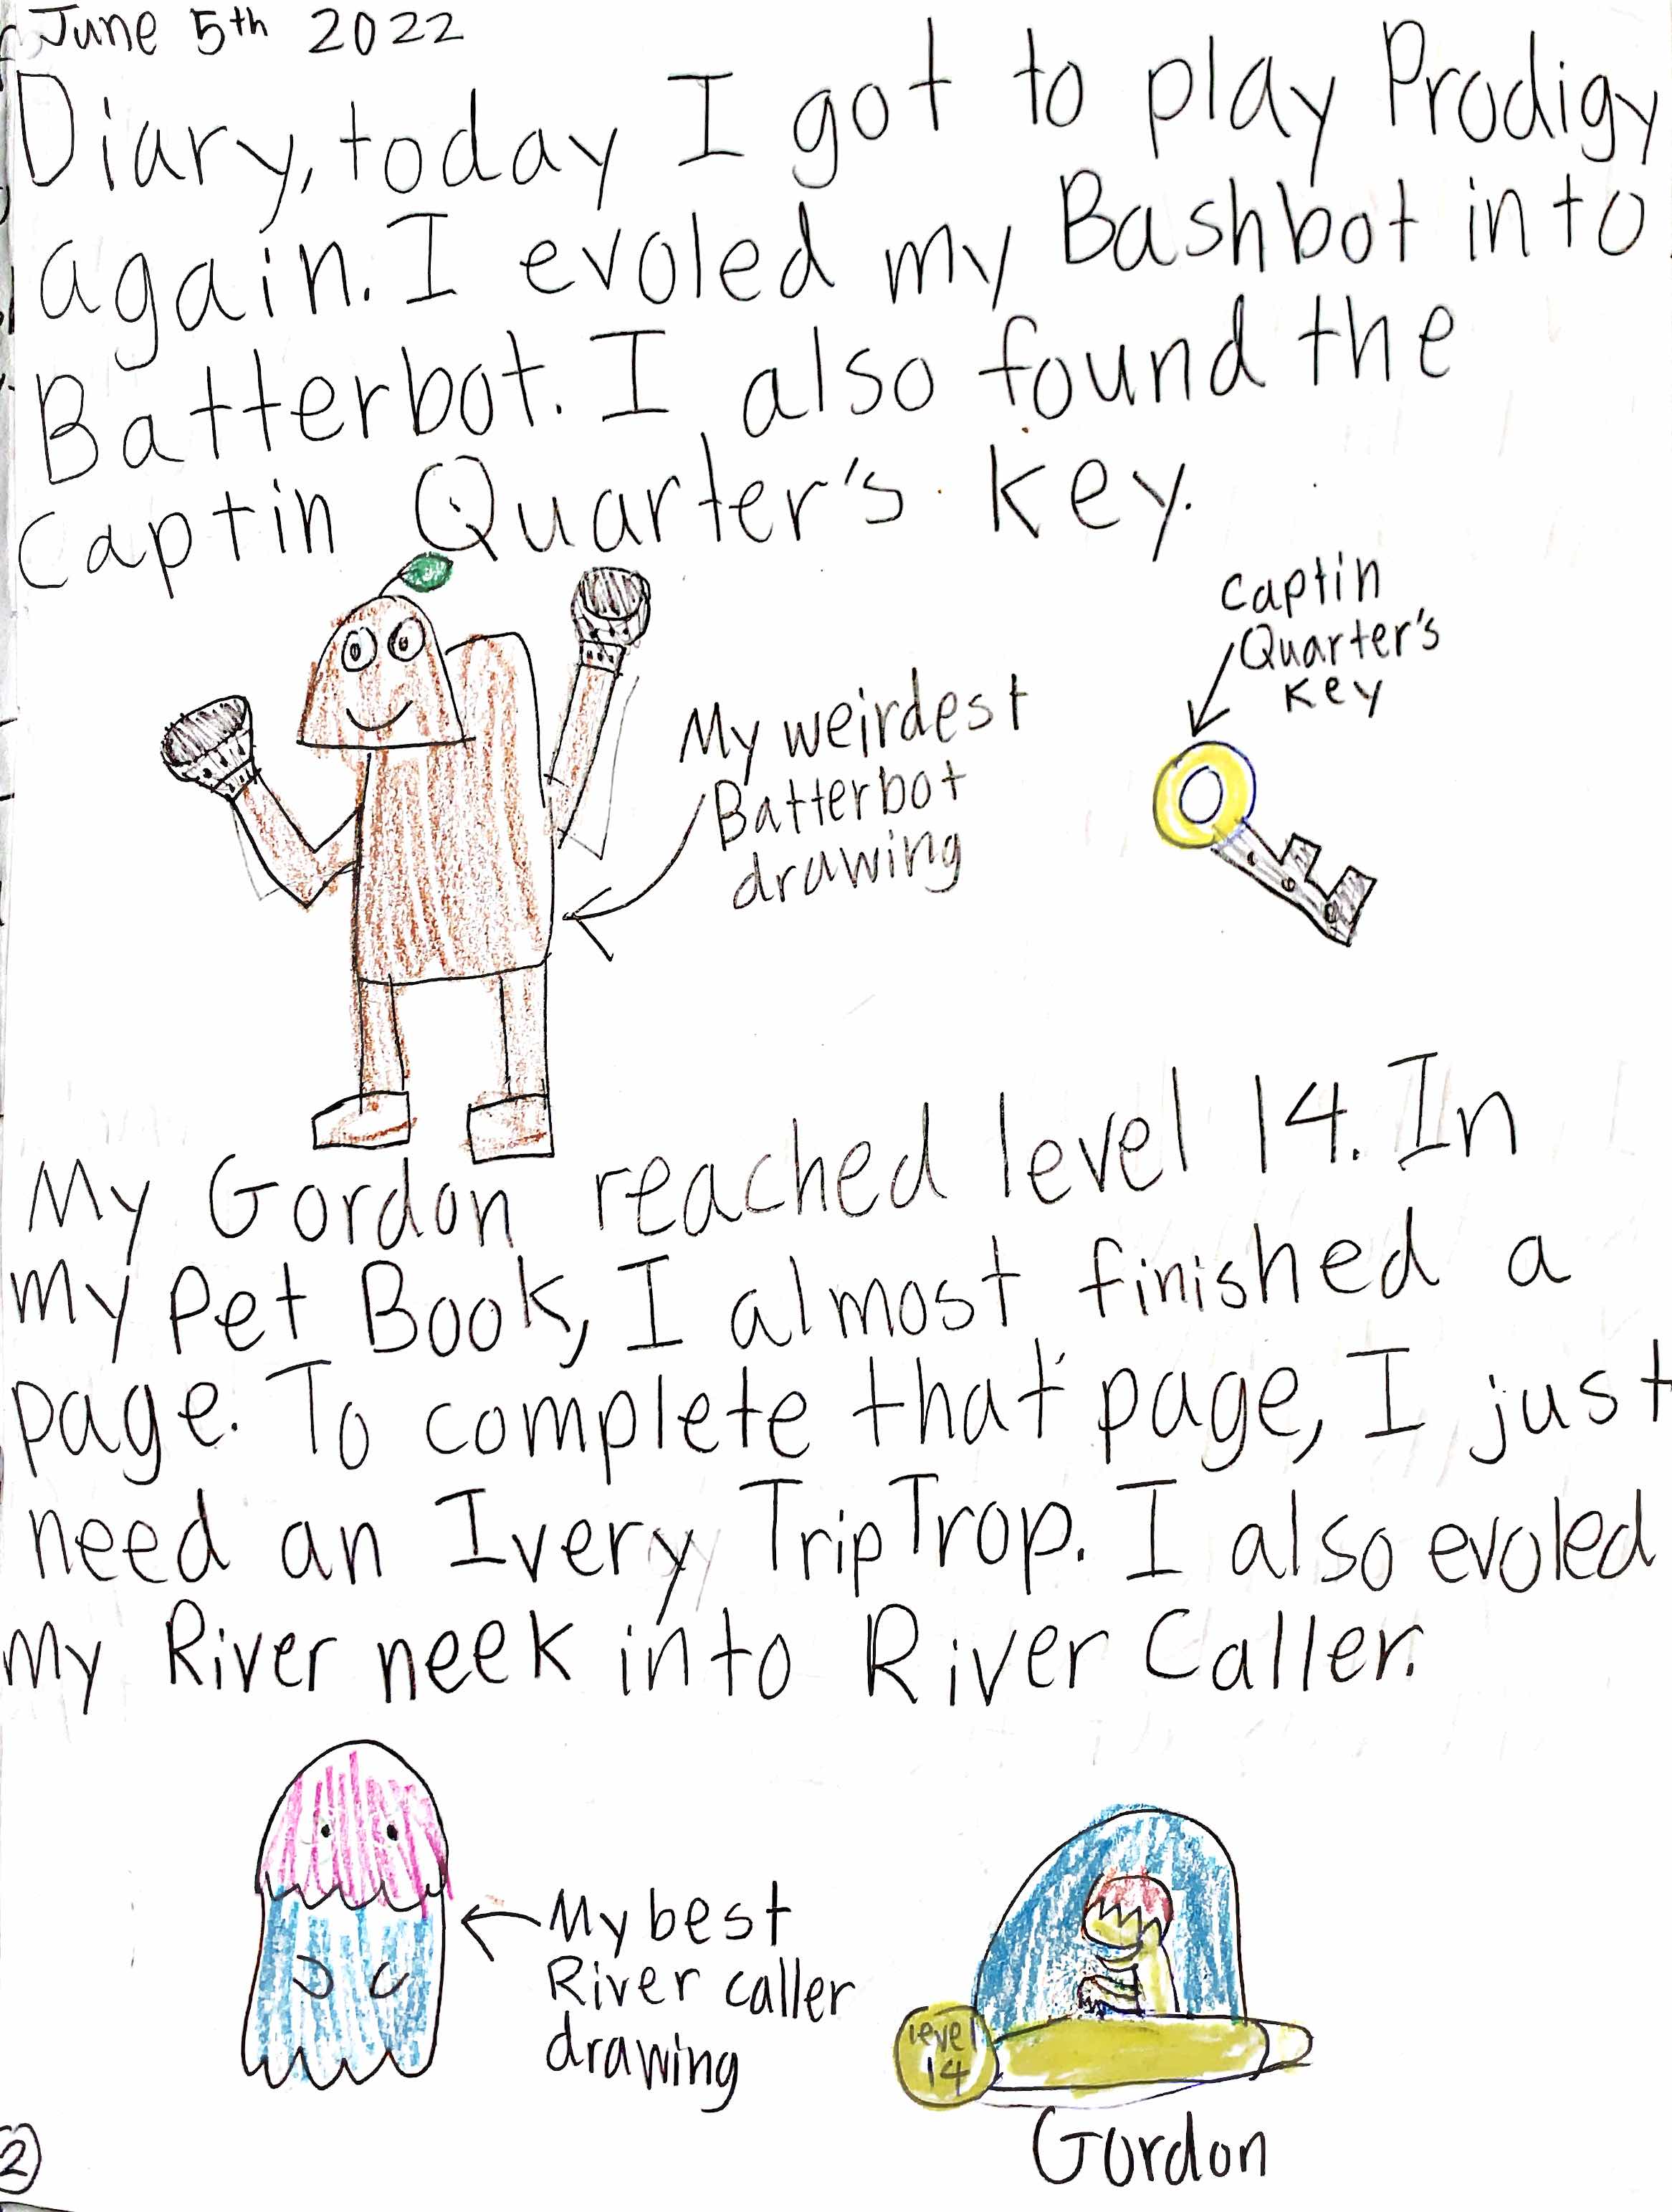 June 5th 2022
Diary, today I got to play Prodigy
again. I evoled my Bashbot into
Batterbot. I also found the
Captin Quarter's key.
Captin
Quarter's
key
My weirdest
Batterbot
drawing
My Gordon reached level 14. In
my Pet Book, I almost finished a
page. To complete that page, I just
need an Ivery TripTrop. I also evoled
my River neek into River Caller.
My best
River caller
drawing
level
14
Gordon
2